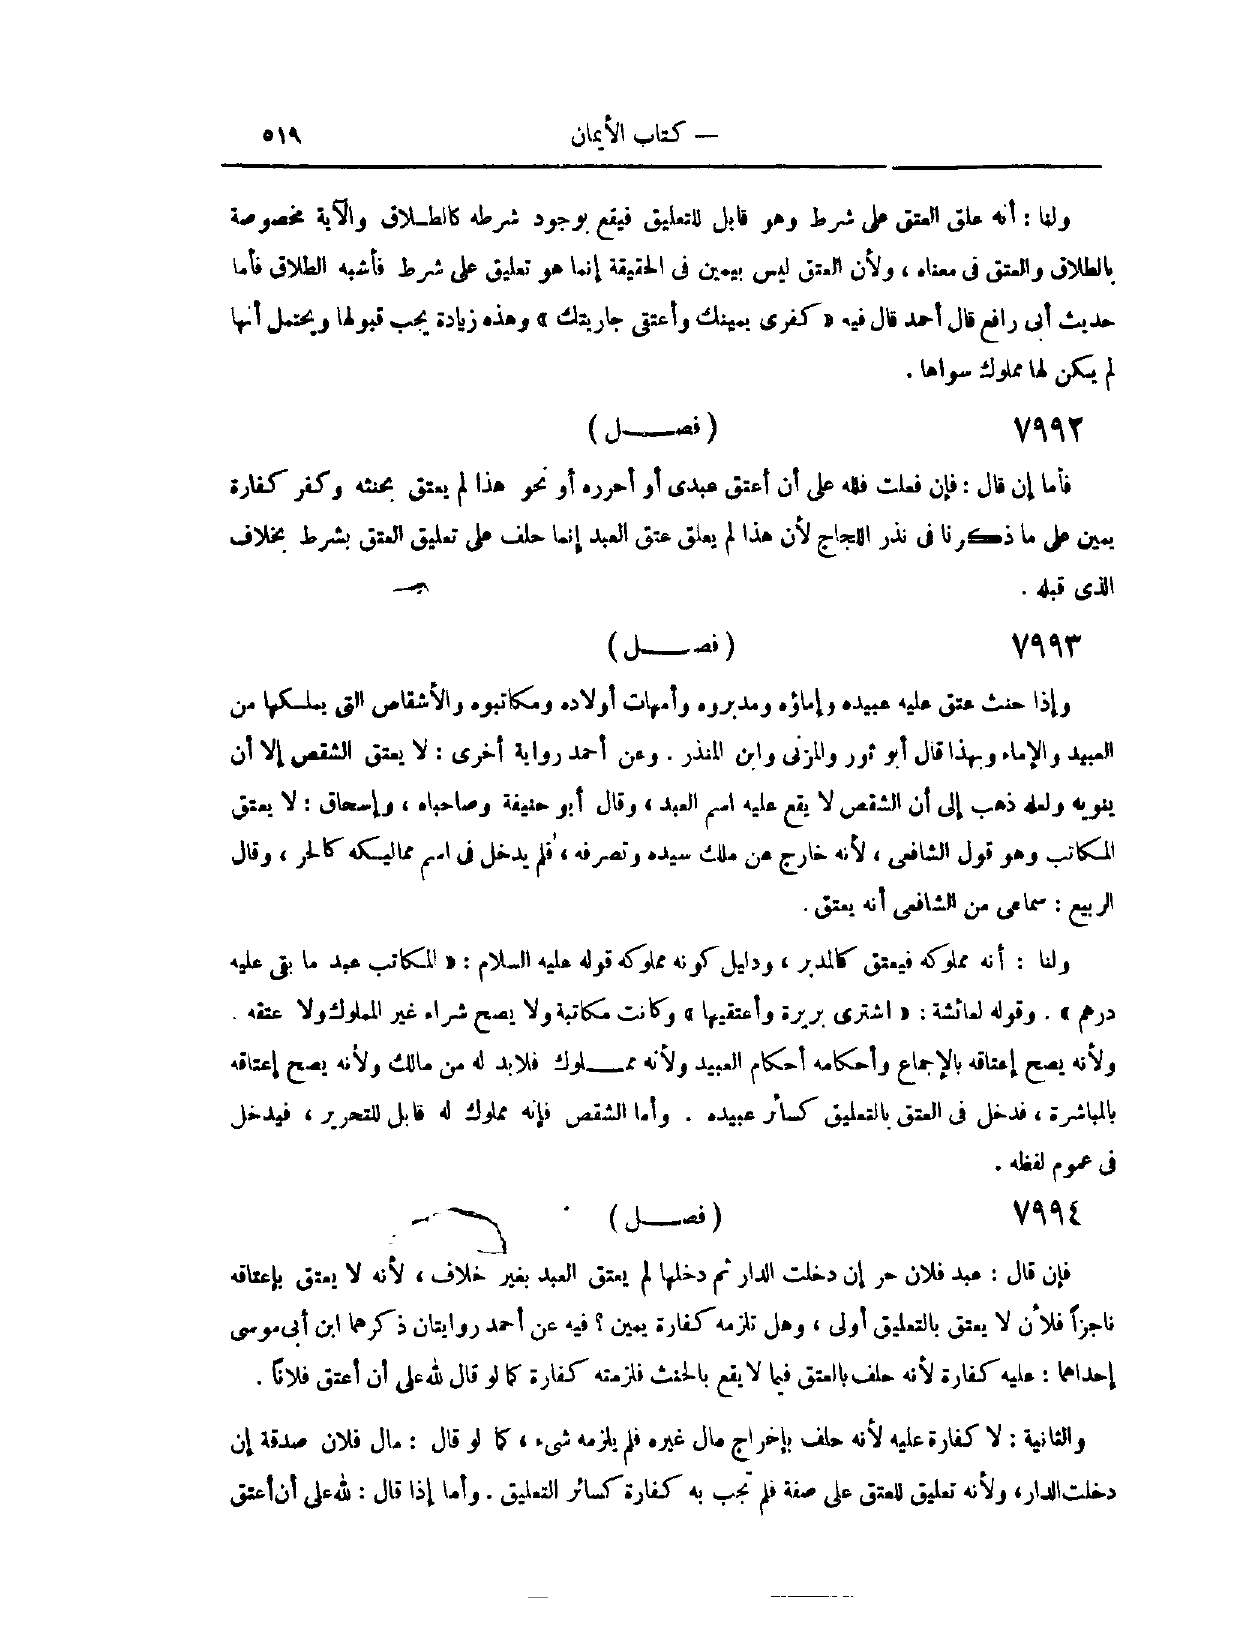 — كتاب الأيمان ٥١٩
ولنا : أنه علق العتق على شرط وهو قابل للتعليق فيقع بوجود شرطه كالطلاق والآية مخصوصة
بالطلاق والعتق فى معناه ، ولأن العتق ليس بيمين فى الحقيقة إنما هو تعليق على شرط فأشبه الطلاق فأما
حديث أبى رافع قال أحمد قال فيه « كفرى يمينك وأعتقى جاريتك » وهذه زيادة يجب قبولها ويحتمل أنها
لم يكن لها مملوك سواها .
٧٩٩٢ ( فصل )
فأما إن قال : فإن فعلت فلله على أن أعتق عبدى أو أحرره أو نحو هذا لم يعتق بحنثه وكفر كفارة
يمين على ما ذكرنا فى نذر اللجاج لأن هذا لم يعلق عتق العبد إنما حلف على تعليق العتق بشرط بخلاف
الذى قبله .
٧٩٩٣ ( فصل )
وإذا حنث عتق عليه عبيده وإماؤه ومدبروه وأمهات أولاده ومكاتبوه والأشقاص التى يملكها من
العبيد والإماء وبهذا قال أبو ثور والمزنى وابن المنذر . وعن أحمد رواية أخرى : لا يعتق الشقص إلا أن
ينويه ولعله ذهب إلى أن الشقص لا يقع عليه اسم العبد ، وقال أبو حنيفة وصاحباه ، وإسحاق : لا يعتق
المكاتب وهو قول الشافعى ، لأنه خارج عن ملك سيده وتصرفه ، فلم يدخل فى اسم مماليكه كالحر ، وقال
الربيع : سماعى من الشافعى أنه يعتق .
ولنا : أنه مملوكه فيعتق كالمدبر ، ودليل كونه مملوكه قوله عليه السلام : « المكاتب عبد ما بقى عليه
درهم » . وقوله لعائشة : « اشترى بريرة وأعتقيها » وكانت مكاتبة ولا يصح شراء غير المملوك ولا عتقه .
ولأنه يصح إعتاقه بالإجماع وأحكامه أحكام العبيد ولأنه مملوك فلابد له من مالك ولأنه يصح إعتاقه
بالمباشرة ، فدخل فى العتق بالتعليق كسائر عبيده . وأما الشقص فإنه مملوك له قابل للتحرير ، فيدخل
فى عموم لفظه .
٧٩٩٤ ( فصل )
فإن قال : عبد فلان حر إن دخلت الدار ثم دخلها لم يعتق العبد بغير خلاف ، لأنه لا يعتق بإعتاقه
ناجزاً فلأن لا يعتق بالتعليق أولى ، وهل تلزمه كفارة يمين ؟ فيه عن أحمد روايتان ذكرهما ابن أبى موسى
إحداهما : عليه كفارة لأنه حلف بالعتق فيما لا يقع بالحنث فلزمته كفارة كما لو قال لله على أن أعتق فلاناً .
والثانية : لا كفارة عليه لأنه حلف بإخراج مال غيره فلم يلزمه شىء ، كما لو قال : مال فلان صدقة إن
دخلت الدار، ولأنه تعليق للعتق على صفة فلم تجب به كفارة كسائر التعليق . وأما إذا قال : لله على أن أعتق